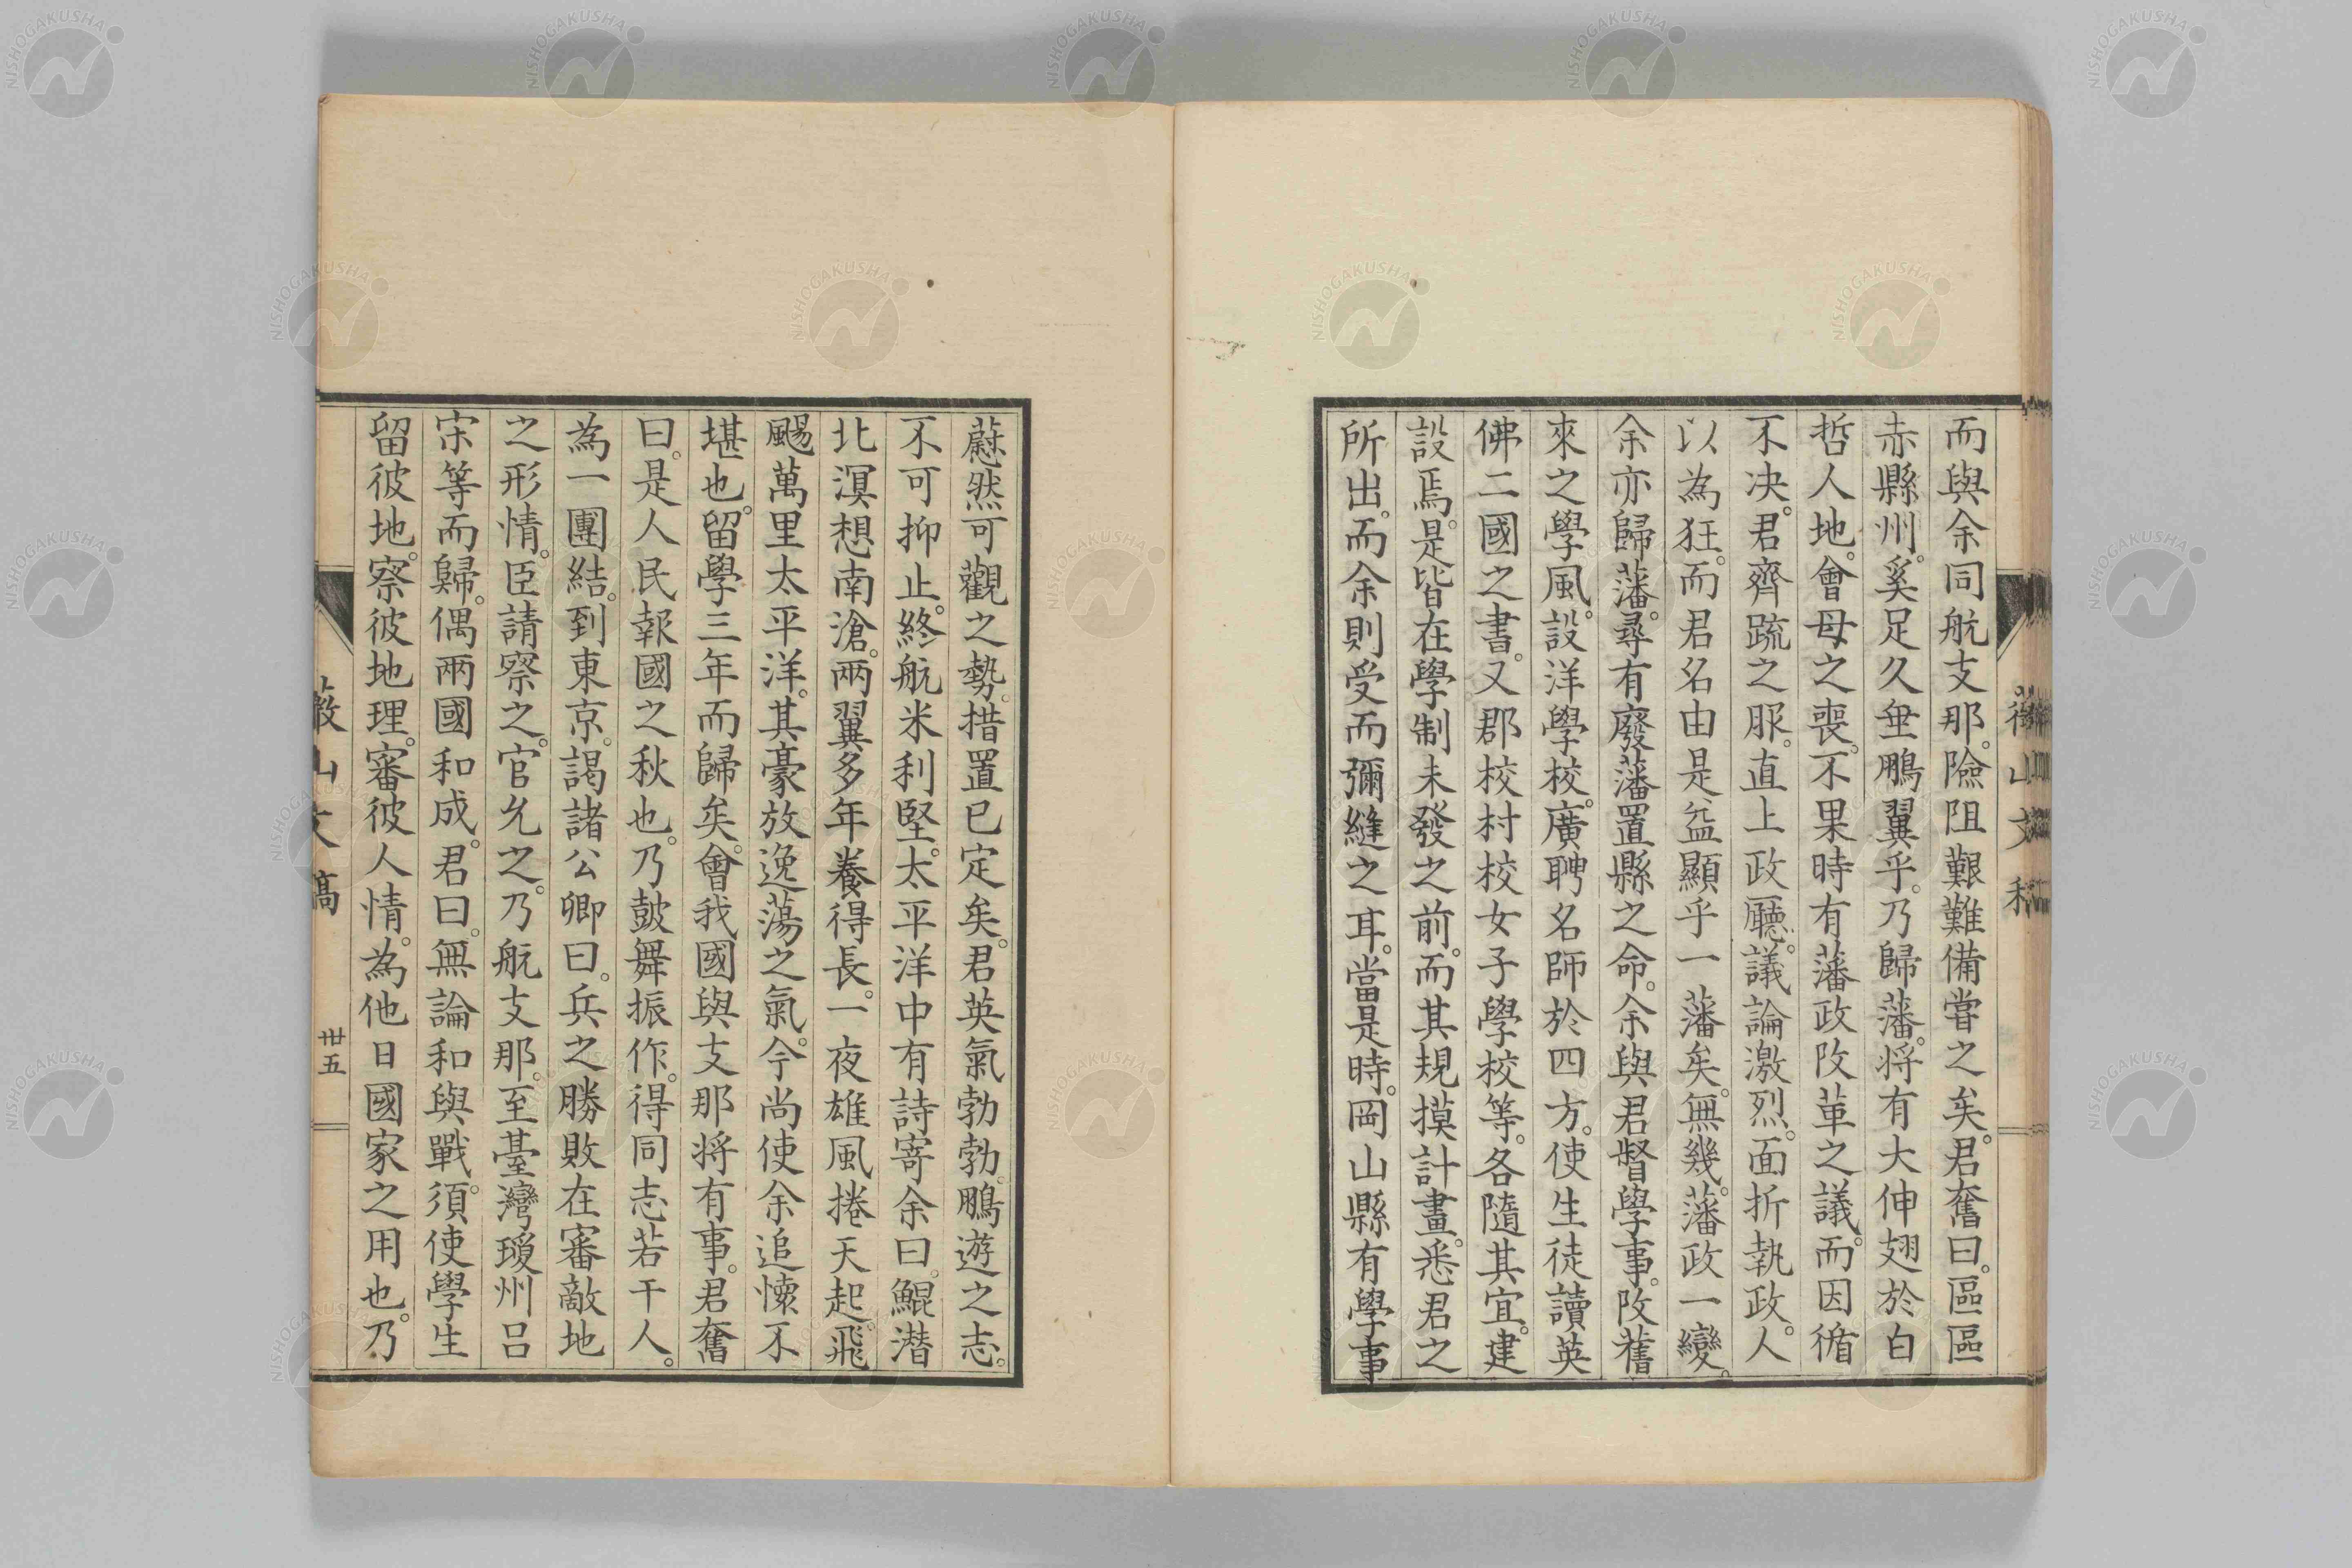 而與余同航支那。險阻艱難備嘗之矣。君奮曰。區區
赤縣州。奚足久垂鵬翼乎。乃歸藩。将有大伸翅於白
哲人地。會母之喪。不果時有藩政改革之議。而因循
不决。君齊疏之服。直上政廳。議論激烈。面折執政。人
以為狂。而君名由是益顯乎一藩矣。無幾。藩政一變。
余亦歸藩。尋有廢藩置縣之命。余與君督學事。改舊
來之學風。設洋學校。廣聘名師於四方。使生徒讀英
佛二國之書。又郡校村校女子學校等。各隨其宜。建
設焉。是皆在學制未發之前。而其規摸計畫。悉君之
所出。而余則受而彌縫之耳。當是時。岡山縣有學事
蔚然可觀之勢。措置已定矣。君英氣勃勃。鵬遊之志。
不可抑止。終航米利堅。太平洋中有詩寄余曰。鯤潜
北溟想南滄。兩翼多年養得長。一夜雄風捲天起。飛
颺萬里太平洋。其豪放逸蕩之氣。今尚使余追懐不
堪也。留學三年而歸矣。會我國與支那将有事。君奮
曰。是人民報國之秋也。乃皷舞振作。得同志若干人。
為一團結。到東京。謁諸公卿曰。兵之勝敗在審敵地
之形情。臣請察之。官允之。乃航支那。至臺灣瓊州呂
宋等而歸。偶兩國和成。君曰。無論和與戰。須使學生
留彼地。察彼地理。審彼人情。為他日國家之用也。乃
山文稿
卅五
NISHOGAKUSHA